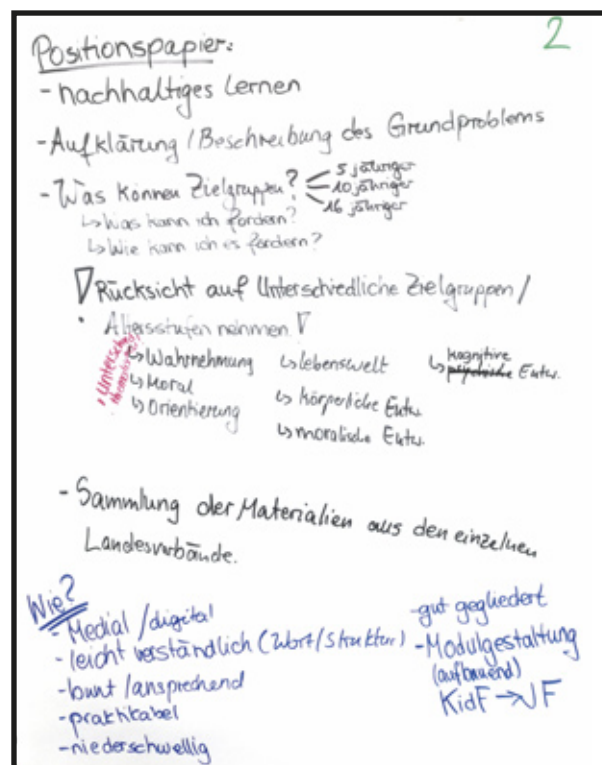 2
Positionspapier:
- nachhaltiges Lernen
- Aufklärung / Beschreibung des Grundproblems
- Was können Zielgruppen? 5 jähriger
10 jähriger
16 jähriger
↳ Was kann ich fordern?
↳ Wie kann ich es fördern?
! Rücksicht auf Unterschiedliche Zielgruppen /
Altersstufen nehmen !
↳ Wahrnehmung ↳ Lebenswelt ↳ kognitive
↳ Moral psychische Entw.
↳ Orientierung ↳ körperliche Entw.
↳ moralische Entw.
- Sammlung der Materialien aus den einzelnen
Landesverbände.
Wie?
- Medial / digital
- leicht verständlich (Wort/Struktur)
- bunt / ansprechend
- praktikabel
- niederschwellig
- gut gegliedert
- Modulgestaltung
(aufbauend)
KidF → JF